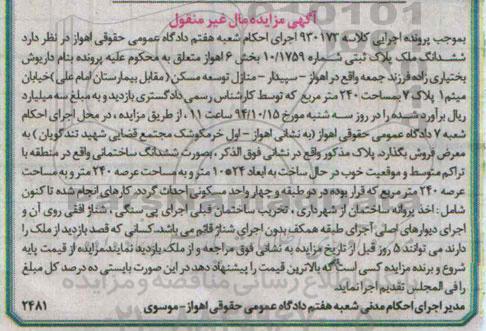 آگهی مزایده مال غیر منقول
بموجب پرونده اجرایی کلاسه ۹۳۰۱۷۳ اجرای احکام شعبه هفتم دادگاه عمومی حقوقی اهواز در نظر دارد
ششدانگ ملک پلاک ثبتی شماره ۱۰/۱۷۵۹ بخش ۶ اهواز متعلق به محکوم علیه پرونده بنام داریوش
بختیاری زاده فرزند جمعه واقع در اهواز - سپیدار - منازل توسعه مسکن (مقابل بیمارستان امام علی) خیابان
میثم۱ پلاک ۷ بمساحت ۲۴۰ متر مربع که توسط کارشناس رسمی دادگستری بازدید و به مبلغ سه میلیارد
ریال برآورد شده را در روز سه شنبه مورخ ۹۴/۱۰/۱۵ ساعت ۱۱ ، از طریق مزایده ، در محل اجرای احکام
شعبه ۷ دادگاه عمومی حقوقی اهواز (به نشانی اهواز - اول خرمکوشک مجتمع قضایی شهید تندگویان ) به
معرض فروش بگذارد. پلاک مذکور واقع در نشانی فوق الذکر ، بصورت ششدانگ ساختمانی واقع در منطقه با
تراکم متوسط و موقعیت خوب در حال ساخت به ابعاد ۲۴*۱۰ متر و به مساحت عرصه ۲۴۰ متر و به مساحت
عرصه ۲۴۰ متر مربع که قرار بوده در دو طبقه و چهار واحد مسکونی احداث گردد. کارهای انجام شده تا کنون
شامل : اخذ پروانه ساختمان از شهرداری ، تخریب ساختمان قبلی اجرای پی سنگی ، شناژ افقی روی آن و
اجرای دیوارهای اصلی آجرای طبقه همکف بدون اجرای شناژ قائم می باشد. کسانی که قصد بازدید از ملک را
دارند می توانند ۵ روز قبل از تاریخ مزایده به نشانی فوق مراجعه و از ملک بازدید نمایند. مزایده از قیمت پایه
شروع و برنده مزایده کسی است که بالاترین قیمت را پیشنهاد دهد در این صورت بایستی ده درصد کل مبلغ
را فی المجلس تقدیم اجرا نماید.
مدیر اجرای احکام مدنی شعبه هفتم دادگاه عمومی حقوقی اهواز - موسوی
۲۴۸۱